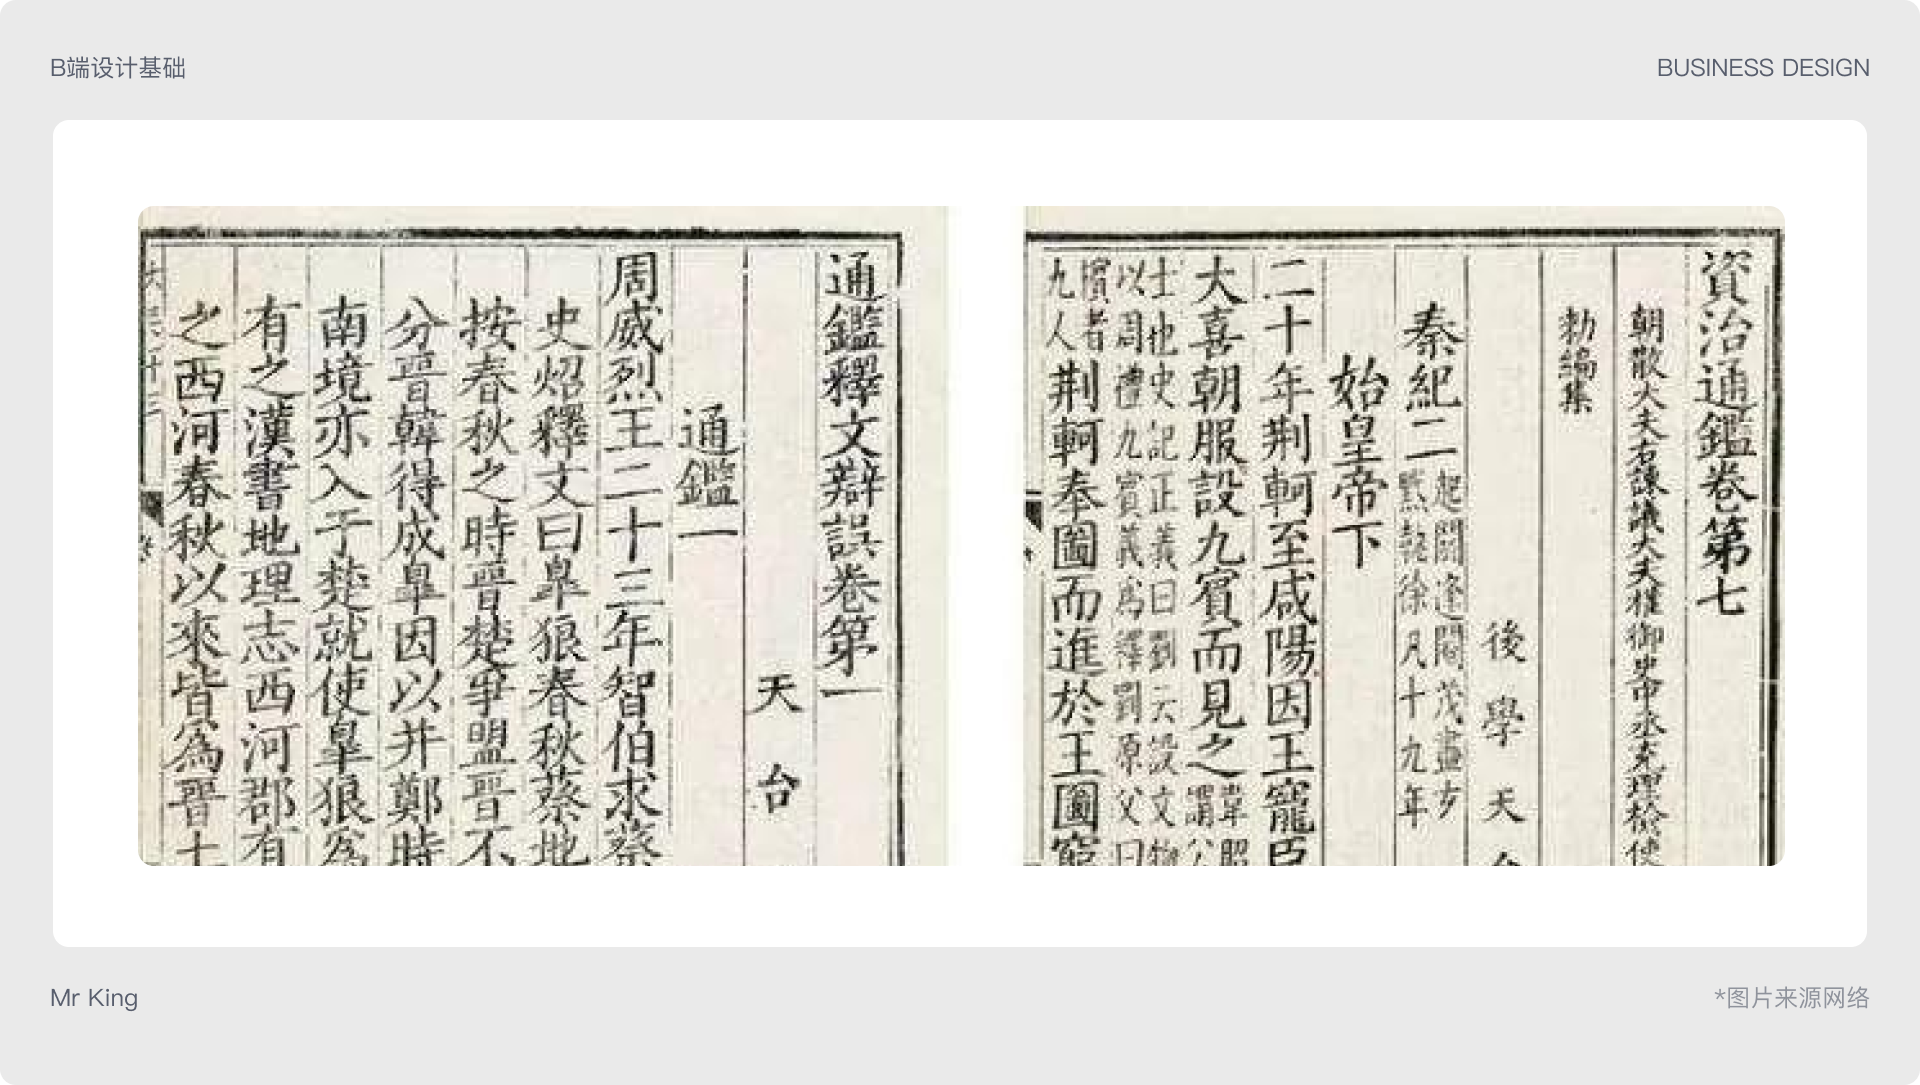 B端设计基础
BUSINESS DESIGN
通鑑釋文辯誤卷第一
天台
通鑑一
周威烈王二十三年智伯求蔡
史炤釋文曰臯狼春秋蔡地
按春秋之時晉楚爭盟晉不
分晉韓得成臯因以并鄭時
南境亦入于楚就使臯狼爲
有之漢書地理志西河郡有
之西河春秋以來皆爲晉土
資治通鑑卷第七
朝散大夫右諫議大夫權御史中丞充理檢使
勑編集
後學天台
秦紀二
起閼逢閹茂盡玄
黓執徐凡十九年
始皇帝下
二十年荆軻至咸陽因王寵臣
大喜朝服設九賓而見之
韋昭
謂公
士也史記正義曰劉云設文物
以周禮九賓義爲釋劉原父曰
賓者
九人
荆軻奉圖而進於王圖窮
Mr King
*图片来源网络